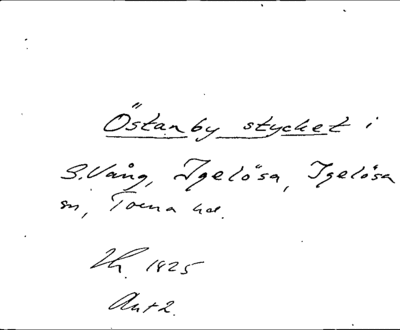 Östanby stycket i
S. Vång, Igelösa, Igelösa
sn, Torna hd.
Lh. 1825
Akt 2.